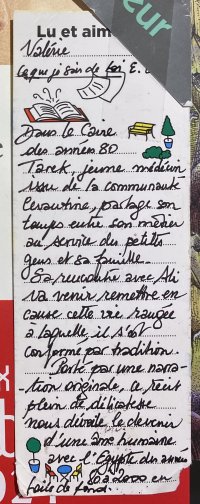 eur
Lu et aim
Valérie
Ce que je sais de toi E.
Dans le Caire
des années 80
Tarek, jeune médecin
issu de la communauté
levantine, partage son
temps entre son métier
au service des petits
gens et sa famille.
Sa rencontre avec Ali
va venir remettre en
cause cette vie rangée
à laquelle il s'est
conformé par tradition.
Porté par une narra-
-tion originale, ce récit
plein de délicatesse
nous dévoile le devenir
d'une âme humaine
avec l'Egypte des années
80 à 2000 en
fond.